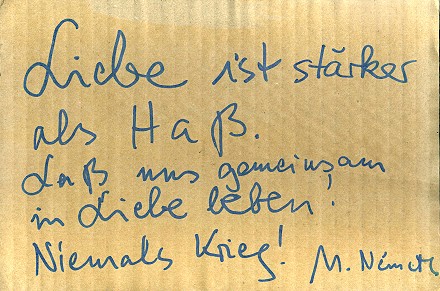 Liebe ist stärker
als Haß.
Laß uns gemeinsam
in Liebe leben!
Niemals Krieg! M. Németh